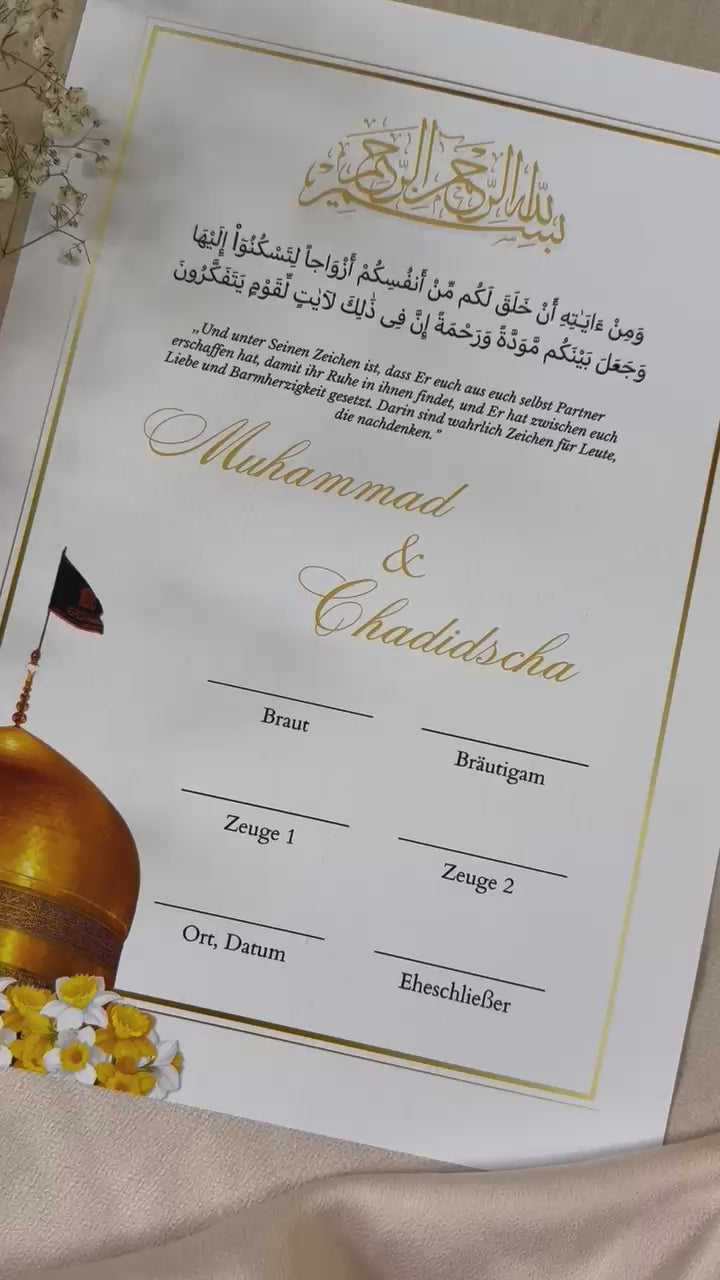 بسم الله الرحمن الرحيم
وَمِنْ ءَايَـٰتِهِ أَنْ خَلَقَ لَكُم مِّنْ أَنفُسِكُمْ أَزْوَاجاً لِتَسْكُنُوٓاْ إِلَيْهَا
وَجَعَلَ بَيْنَكُم مَّوَدَّةً وَرَحْمَةً إِنَّ فِى ذَٰلِكَ لَآيَـٰتٍ لِّقَوْمٍ يَتَفَكَّرُونَ
„Und unter Seinen Zeichen ist, dass Er euch aus euch selbst Partner
erschaffen hat, damit ihr Ruhe in ihnen findet, und Er hat zwischen euch
Liebe und Barmherzigkeit gesetzt. Darin sind wahrlich Zeichen für Leute,
die nachdenken.”
Muhammad
&
Chadidscha
Braut
Bräutigam
Zeuge 1
Zeuge 2
Ort, Datum
Eheschließer